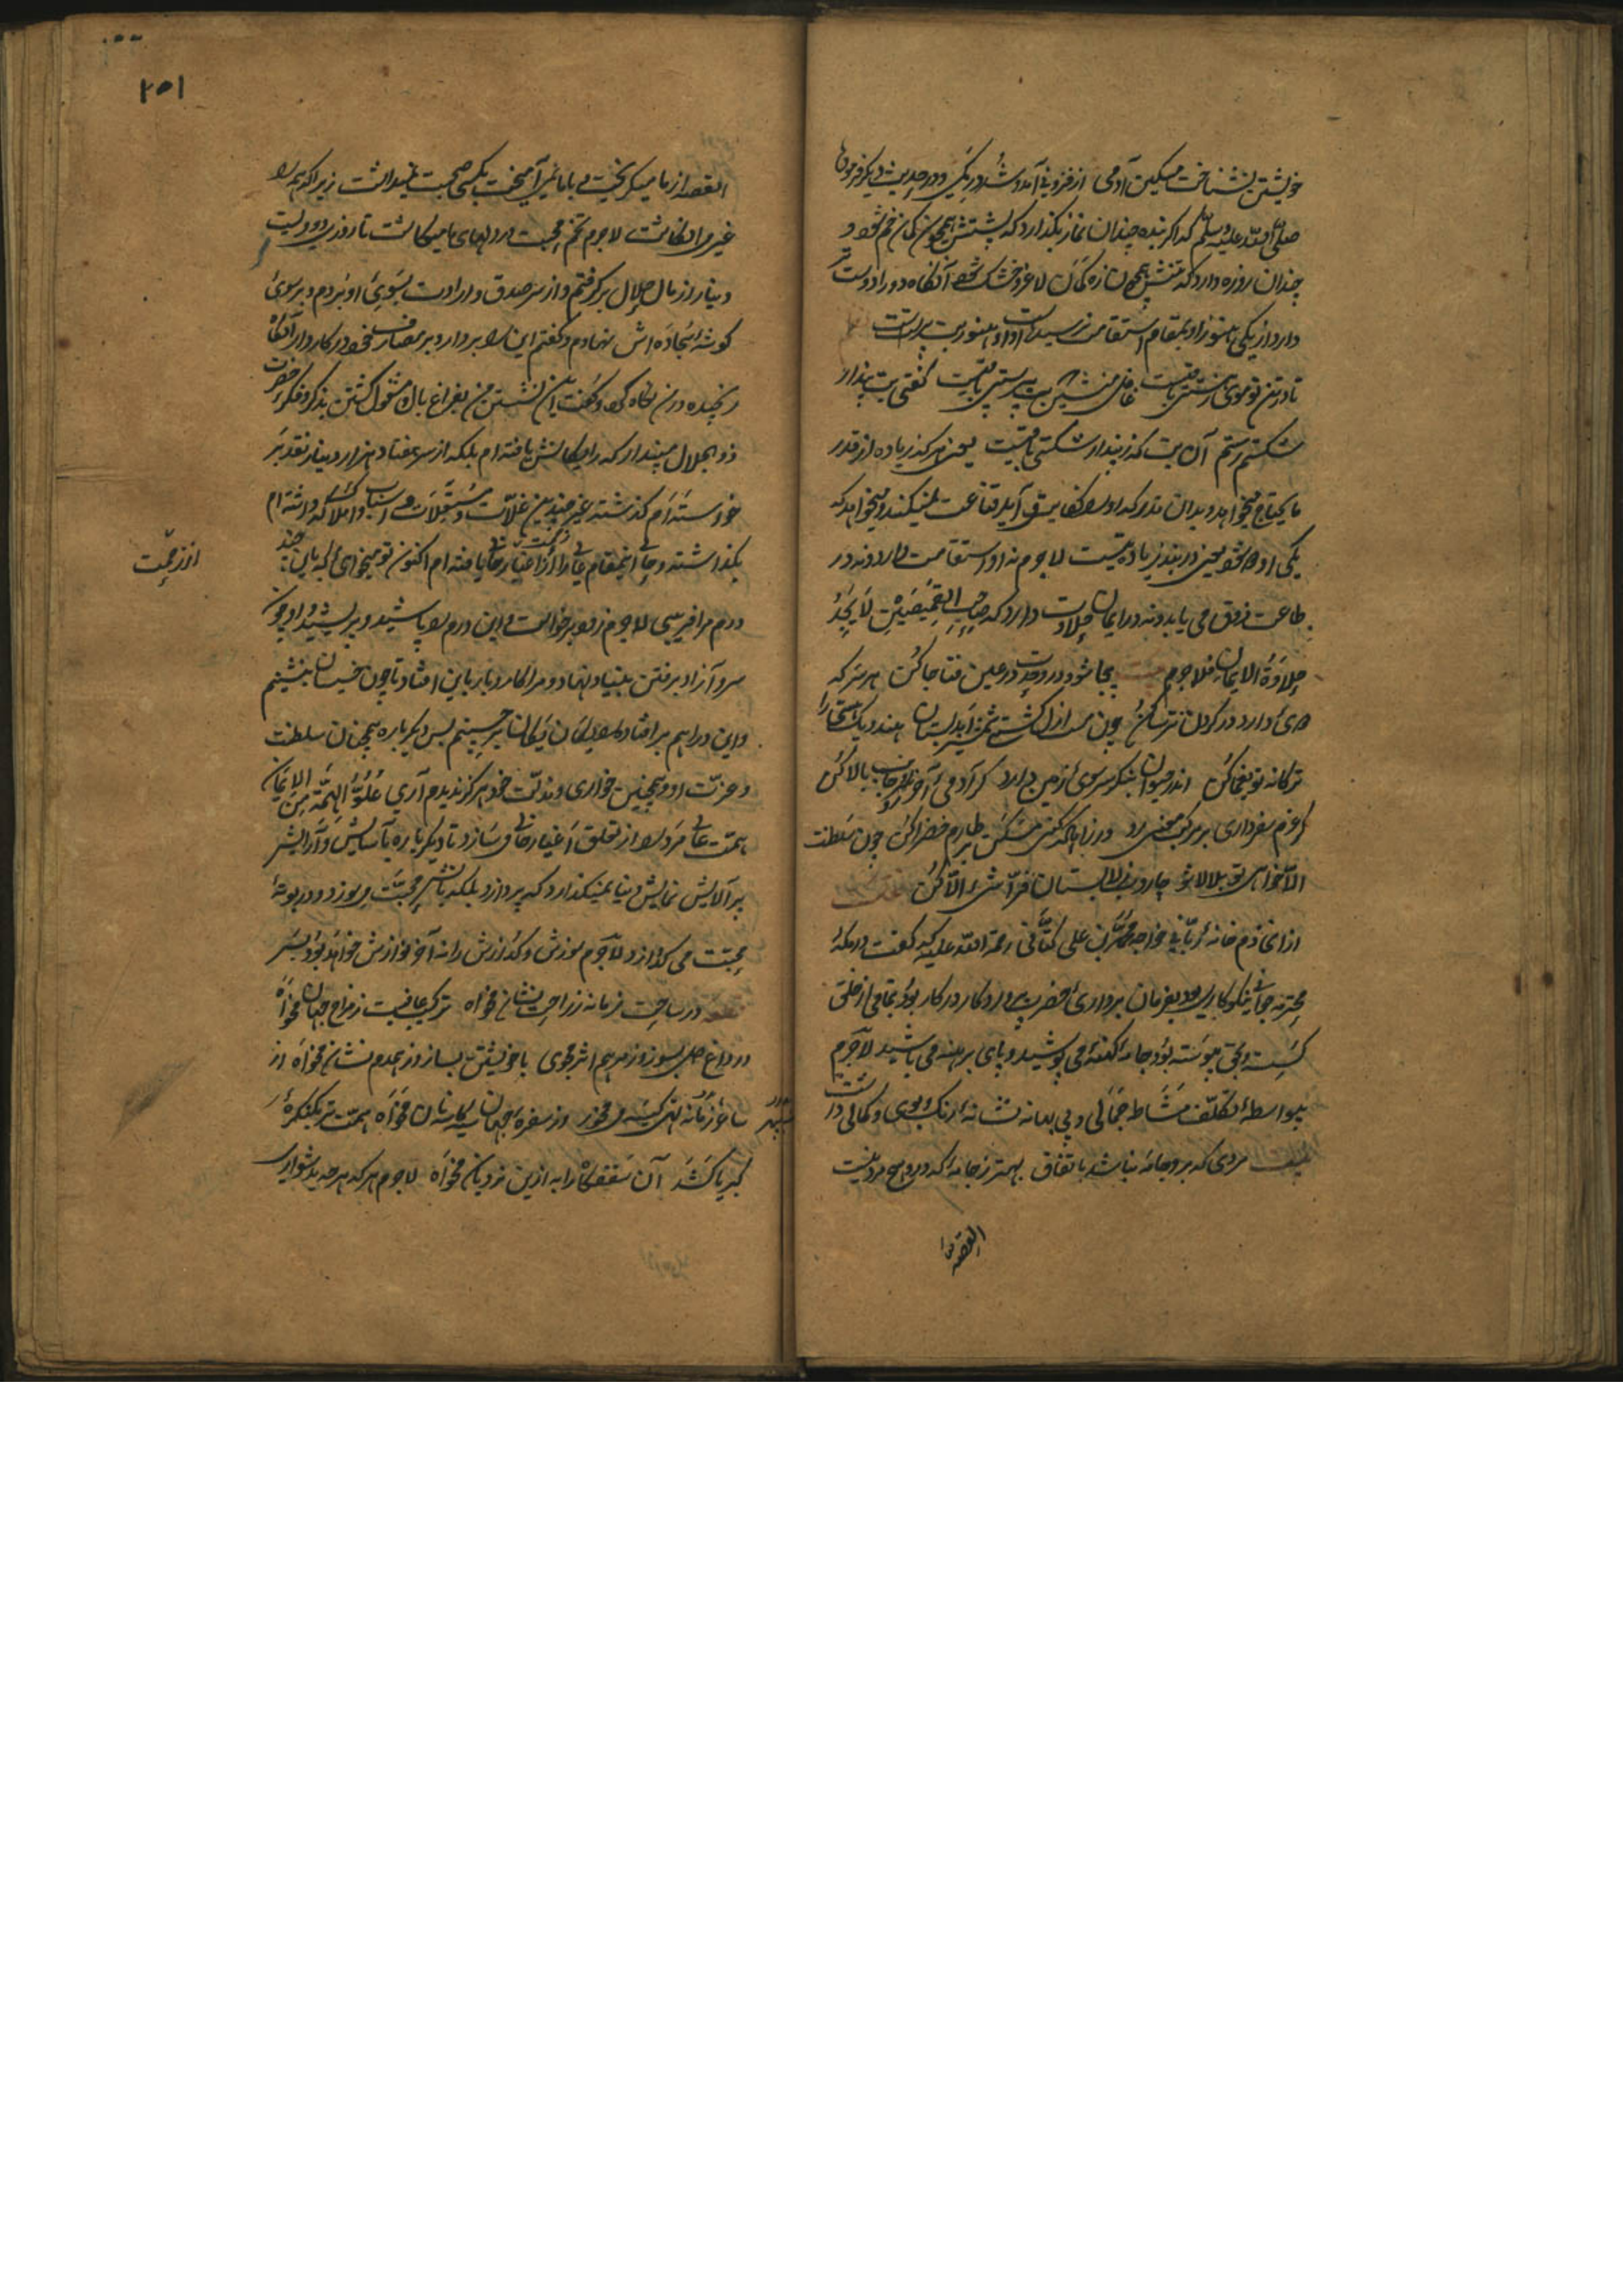 خویشتن نشناخت مسکین آدمی از فزونی آمد و شد در کمی و در حدیث دیگر فرمود
صلی الله علیه وسلم که اگر بنده چندان نماز بگذارد که پشتش همچون کمان خم شود و
چندان روزه دارد که تنش همچون زه کمان لاغر و خشک شود آنگاه دو را دوست تر
دارد از یکی هنوز او بمقام استقامت نرسیده است او او هنوز بت پرست است
تا در تن تو موی ز هستی باقیست غافل منشین که بت پرستی باقیست گفتی بت پندار
شکستم رستم آن بت که ز پندار شکستی باقیست یعنی هر که زیاده از قدر
ما یحتاج میخواهد و بدان قدر که او را کفایت آید قناعت نمیکند و میخواهد که
یکی او دو شود یعنی در بند زیادتیست لاجرم نه او استقامت دارد و نه در
طاعت ذوق می یابد و نه در ایمان حلاوت دارد که صاحب القمیصین لا یجد
حلاوة الایمان فلاجرم بیجا شو و در وحدت در عین فنا جا کن هر سر که
دوی دارد در گردن ترسا کن
ترکانه تو یغما کن اندر حیوان بنگر سر سوی زمین دارد گر آدمی آخر سر جانب بالا کن
گر عزم سفر داری بر مرکب معنی رو ور زانکه کنی مسکن بر طارم خضرا کن چون سلطنت
الا خواهی تو بلالا شو جاروب ز لا بستان فراشی الا کن
از ان خادم خانه ربانی خواجه محمد بن علی کتانی رحمة الله علیه که گفت در مکه
محترمه جوانی نیکوکاری بود بفرمان برداری حضرت پروردگار در کار بود بتمامی از خلق
گسسته و بحق پیوسته بود جامه کهنه می پوشید و پای برهنه می باشید لاجرم
بیواسطه تکلف مشاط جمالی و بی بهانه شانه رنگ و بوی و کمالی داشت
بیت مردی که برو جامه نباشد باتفاق بهتر ز جامه که درو هیچ مرد نیست
القصه از ما
۲۵۱
القصه از ما میگریخت و با ما نمی آمیخت بکسی صحبت نمیداشت زیرا که همه را
غیر می انگاشت لاجرم تخم محبت در دلهای ما میکاشت تا روزی دویست
دینار از مال حلال برگرفتم و از سر صدق و ارادت بسوی او بردم و بر سوی
گوشه سجاده اش نهادم و گفتم این را بردار و بر مصارف خود در کار دار آنگاه
رنجیده در من نگاه کرد و گفت این نشستن من بفراغ بال و مشغول گشتن بذکر و فکر حضرت
ذو الجلال مپندار که رایگانش یافته ام بلکه از سر هفتاد هزار دینار نقد بر
خواسته ام گذشته غیر چندین غلات و مستغلات و اسباب و املاک که داشته ام
بگذاشته و جای اینمقام عالی را از زحمت اغیار خالی یافته ام اکنون تو میخواهی که باین چند
درم مرا فریبی لاجرم زود برخواست و این درم را پاشید و بر پشید و او چون
سرو آزاد برفتن بنیاد نهاد و مرا کار و بار باین افتاد تا چون خسیسان بنشینم
و این دراهم بر افتاده را یکان یکان بر چینم پس دیگر باره همچنان سلطنت
و عزت او و همچنین خواری و مذلت خود هرگز ندیدم آری علو الهمة من الایمان
همت عالی مرد را از تعلق اغیار خالی سازد و تا دیگر باره بآسایش و آرایش
پر آلایش نمایش دنیا نمیگذارد که پردازد بلکه بآتش محبت میسوزد و در بوته
محبت می گدازد لاجرم سوزش و گدازش را نه آخر نوازش خواهد بود
در ساحت زمانه ز راحت نشان مخواه ترکیب عافیت ز مزاج جهان مخواه
در داغ دل بسوز و ز مرهم اثر مجوی با خویشتن بساز و ز همدم نشان مخواه از
ساغر زمانه می مخور وز سفره جهان سیه کاسه نان مخواه همت بر کنگره
کبریا کشد آن سقف را به ازین نردبان مخواه لاجرم هر که هر چه بدشواری
از زحمت